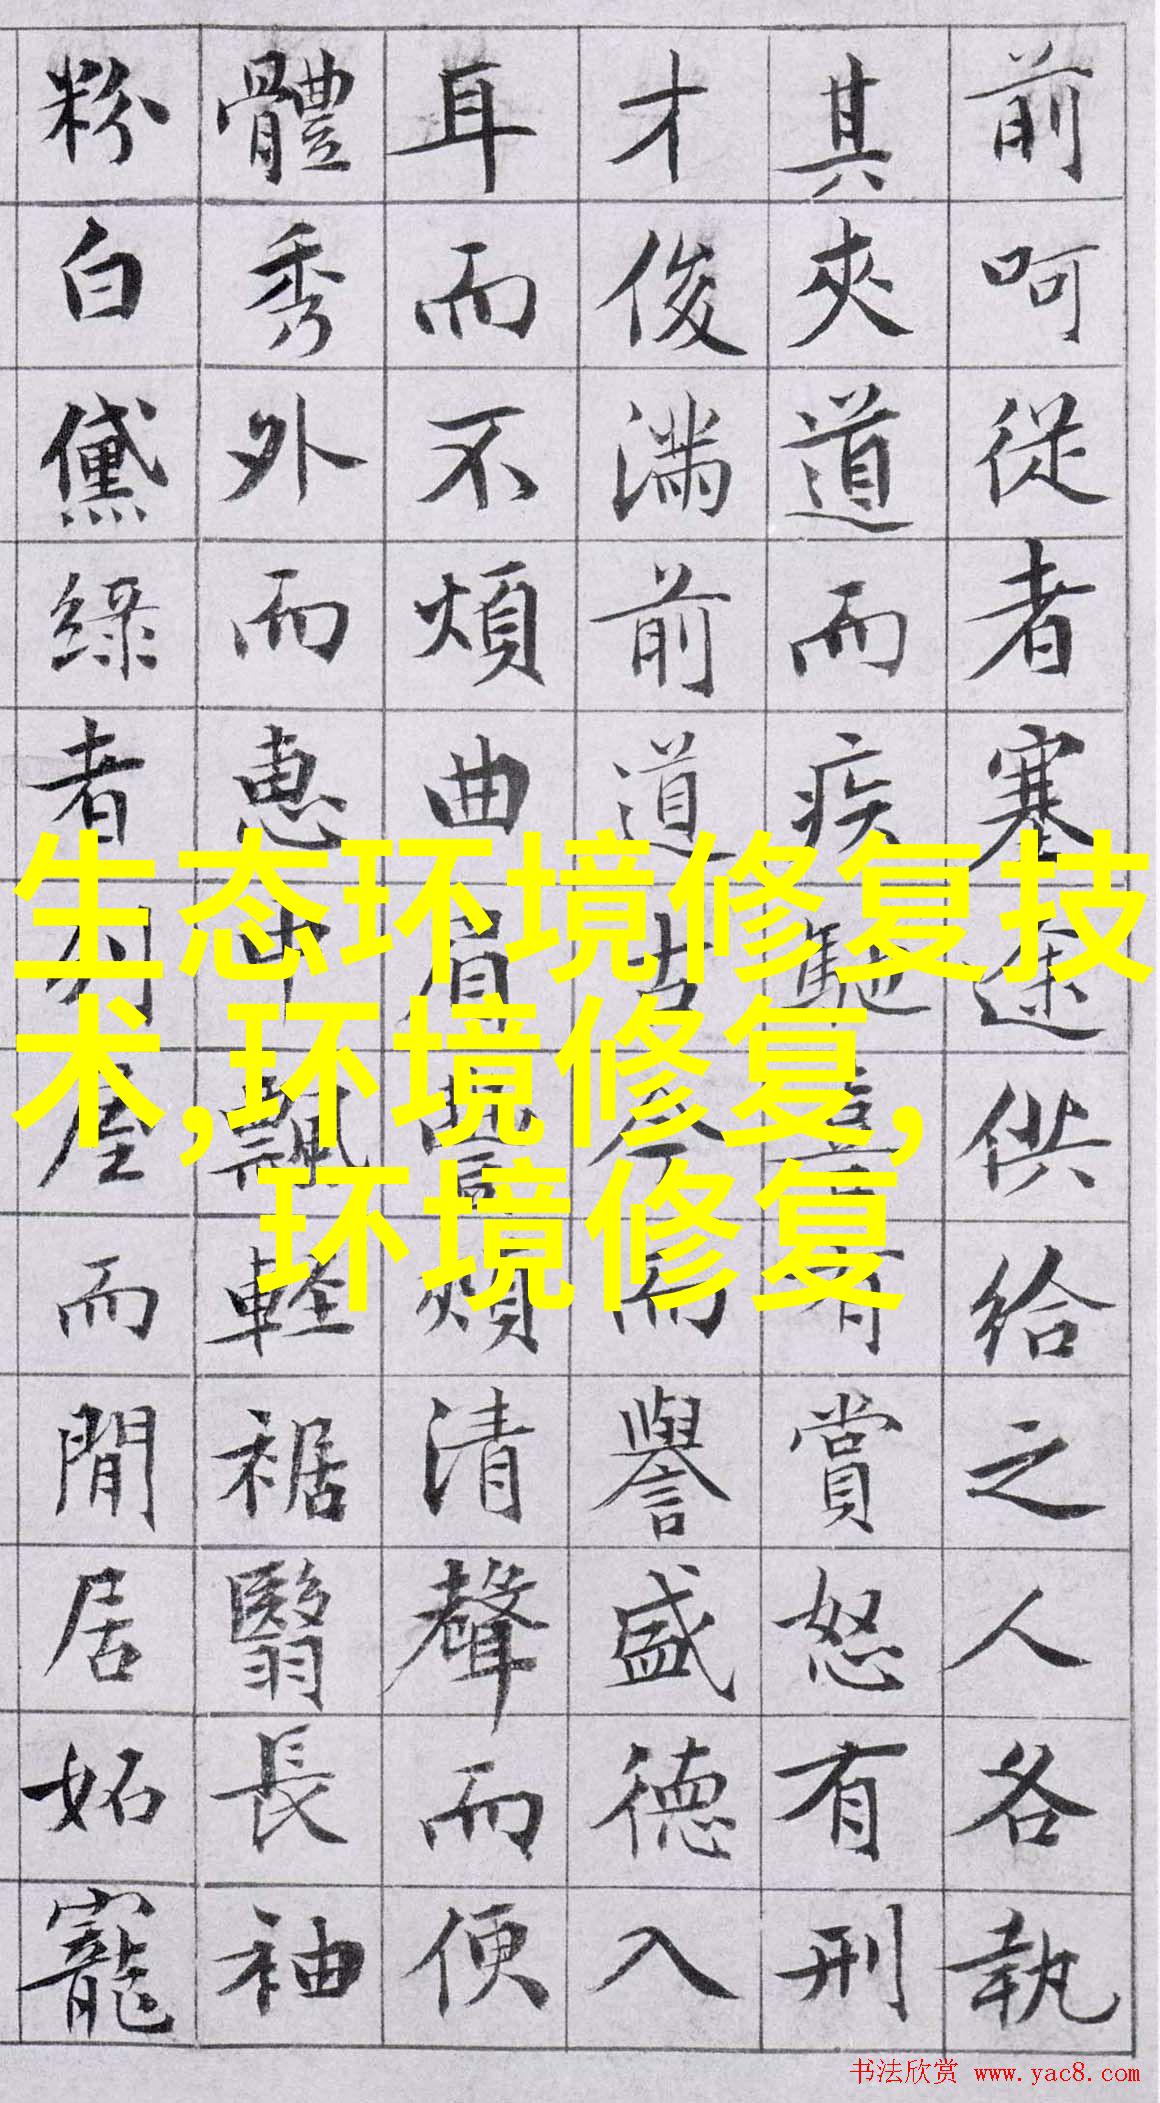 前呵從者塞途供給之人各執
其夾道而疾馳喜有賞怒有刑
才俊滿前道古今而譽盛德入
耳而不煩曲眉豐頰清聲而便
體秀外而惠中飄輕裾翳長袖
粉白黛綠者列屋而閒居妬寵
生态环境修复技
术,环境修复,
环境修复
书法欣赏 www.yac8.com